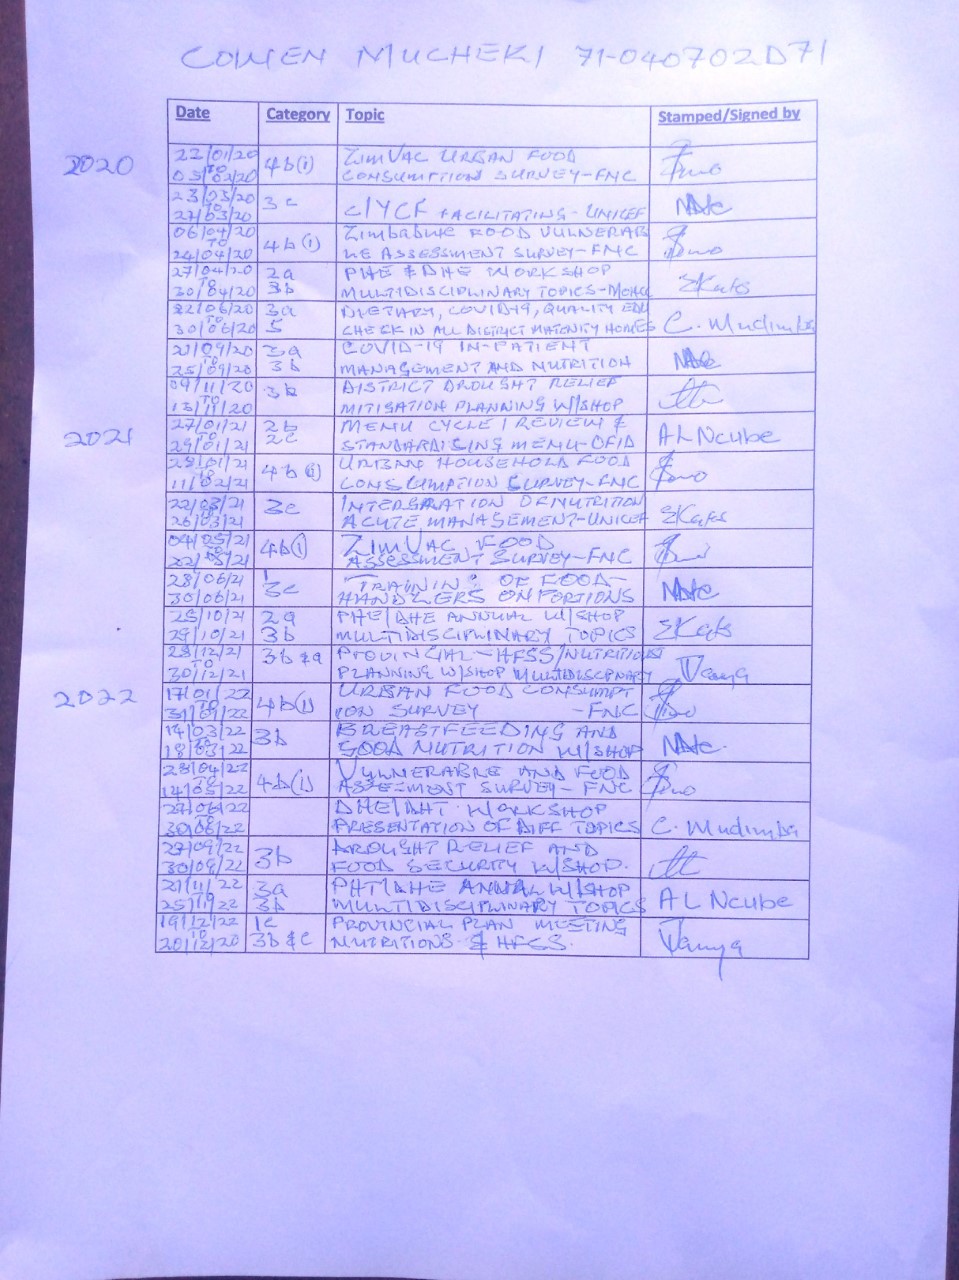 COWEN MUCHEKI 71-040702D71
Date Category Topic Stamped/Signed by
2020
22/01/20 TO 03/02/20 4b(i) ZIMVAC URBAN FOOD
CONSUMPTION SURVEY-FNC
23/03/20 TO 27/03/20 3c CIYCF FACILITATING-UNICEF
06/04/20 TO 24/04/20 4b(i) ZIMBABWE FOOD VULNERAB
LE ASSESSMENT SURVEY-FNC
27/04/20 TO 30/04/20 2a 3b PHE & DHE WORKSHOP
MULTIDISCIPLINARY TOPICS-MOHCC
22/06/20 TO 30/06/20 3a 5 DIETARY, COVID-19, QUALITY EDU
CHECK IN ALL DISTRICT MATERNITY HOMES C. Mudimba
21/09/20 TO 25/09/20 3a 3b COVID-19 IN-PATIENT
MANAGEMENT AND NUTRITION
09/11/20 TO 13/11/20 3b DISTRICT DROUGHT RELIEF
MITIGATION PLANNING W/SHOP
2021
27/01/21 TO 29/01/21 2b 2c MENU CYCLE / REVIEW &
STANDARDISING MENU- ALNcube
28/01/21 TO 11/02/21 4b URBAN HOUSEHOLD FOOD
CONSUMPTION SURVEY-FNC
22/03/21 TO 26/03/21 3c INTERGRATION OF NUTRITION
ACUTE MANAGEMENT-UNICEF
04/05/21 TO 22/05/21 4b(i) ZIMVAC FOOD
ASSESSMENT SURVEY-FNC
28/06/21 30/06/21 3c TRAINING OF FOOD-
HANDLERS ON PORTIONS
25/10/21 29/10/21 2a 3b PHE/DHE ANNUAL W/SHOP
MULTIDISCIPLINARY TOPICS
28/12/21 TO 30/12/21 3b &a PROVINCIAL-HFSS/NUTRITIONIST
PLANNING W/SHOP MULTIDISCPNARY
2022
17/01/22 TO 4b(i) URBAN FOOD CONSUMPT
ION SURVEY -FNC
14/03/22 TO 18/03/22 3b BREASTFEEDING AND
GOOD NUTRITION W/SHOP
28/04/22 TO 14/05/22 4b(i) VULNERABLE AND FOOD
ASSESSMENT SURVEY- FNC
27/06/22 TO 30/06/22 WORKSHOP
PRESENTATION OF DIFF TOPICS C. Mudimba
27/09/22 TO 3b DROUGHT RELIEF AND
FOOD SECURITY W/SHOP.
21/11/22 TO 25/11/22 3a 3b ANNUAL W/SHOP
MULTIDISCIPLINARY TOPICS ALNcube
19/12/22 TO 20/12/20 1c 3b &c PROVINCIAL PLAN MEETING
NUTRITIONS & HFCS.